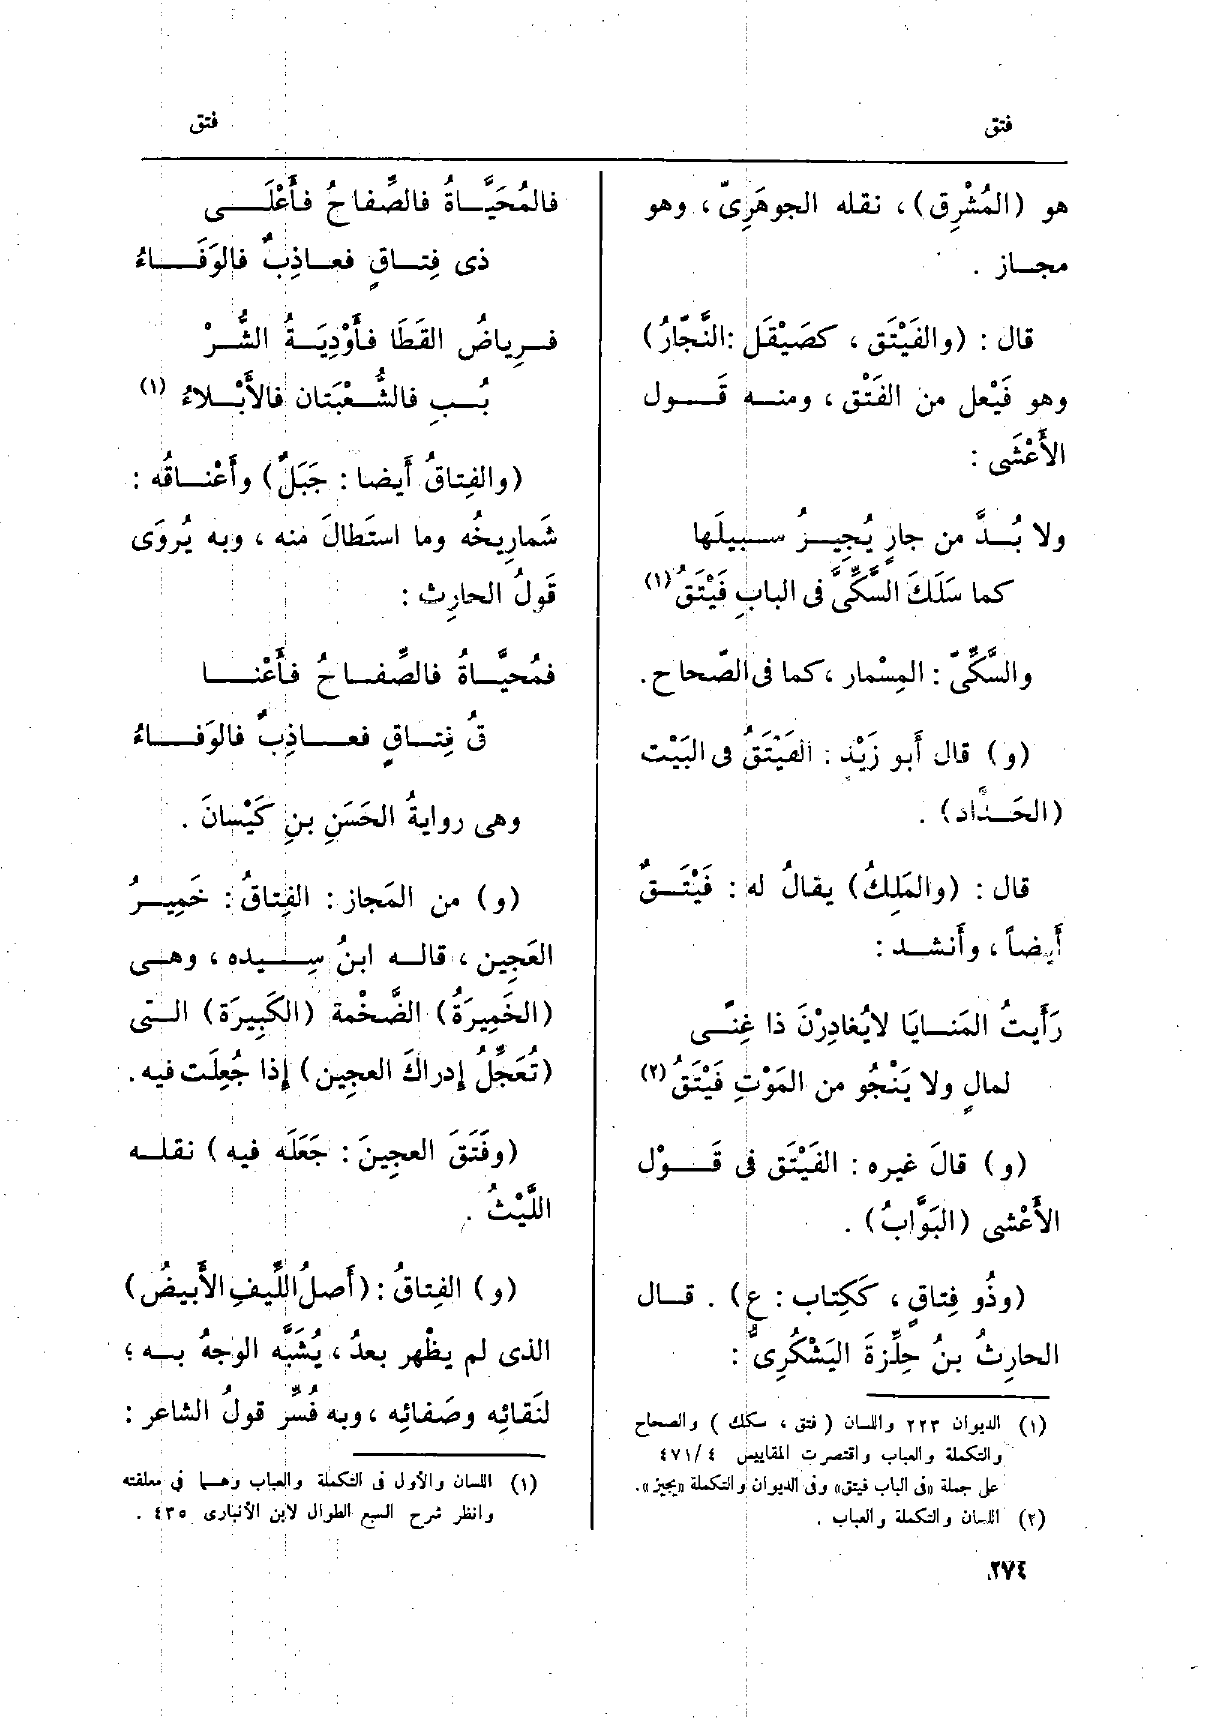 فتق
فتق
هو (المُشْرِق)، نقله الجوهَرِىّ، وهو
مجاز .
قال : (والفَيْتَق ، كصَيْقَل :النَّجّارُ)
وهو فَيْعل من الفَتْق ، ومنه قَول
الأَعْشَى :
ولا بُدَّ من جارٍ يُجِيزُ سبيلَها
كما سَلَكَ السَّكِّىَّ فى البابِ فَيْتَقُ(١)
والسَّكِّىّ : المِسْمار ،كما فى الصّحاح.
(و) قال أَبو زَيْد : الفَيْتَقُ فى البَيْت
(الحَدّاد) .
قال : (والمَلِكُ) يقالُ له : فَيْتَقٌ
أَيضاً ، وأَنشد :
رَأَيتُ المَنايَا لايُغادِرْنَ ذا غِنًى
لمالٍ ولا يَنْجُو من المَوْتِ فَيْتَقُ(٢)
(و) قالَ غيره : الفَيْتَق فى قَوْل
الأَعْشى (البَوَّابُ) .
(وذُو فِتاقٍ ، ككِتاب : ع) . قال
الحارِثُ بنُ حِلِّزةَ اليَشْكُرِىُّ :
(١) الديوان ٢٢٣ واللسان ( فتق ، سكك ) والصحاح
والتكملة والعباب واقتصرت المقاييس ٤/ ٤٧١
على جملة «فى الباب فيتق» وفى الديوان والتكملة «يجيز».
(٢) اللسان والتكملة والعباب .
فالمُحَيَّاةُ فالصِّفاحُ فأَعْلَى
ذى فِتاقٍ فعاذِبٌ فالوَفَاءُ
فرِياضُ القَطَا فأَوْدِيَةُ الشُّرْ
بُبِ فالشُّعْبَتان فالأَبْلاءُ (١)
(والفِتاقُ أَيضا : جَبَلٌ) وأَعْناقُه :
شَمارِيخُه وما استَطالَ منه ، وبه يُروَى
قَولُ الحارِث :
فمُحيَّاةُ فالصِّفاحُ فأَعْنا
قُ فِتاقٍ فعاذِبٌ فالوَفاءُ
وهى روايةُ الحَسَنِ بنِ كَيْسانَ .
(و) من المَجاز : الفِتاقُ : خَمِيرُ
العَجِين ، قاله ابنُ سِيده ، وهى
(الخَمِيرَةُ) الضَّخْمة (الكَبِيرَة) التى
(تُعَجِّلُ إدراكَ العجين) إذا جُعِلَت فيه.
(وفَتَقَ العجينَ : جَعَلَه فيه ) نقله
اللَّيْثُ .
(و) الفِتاقُ :(أَصلُ اللِّيفِ الأَبيضُ)
الذى لم يظْهر بعدُ ، يُشَبَّه الوجهُ به ؛
لنَقائِه وصَفائِه ، وبه فُسِّر قولُ الشاعر :
(١) اللسان والأول فى التكملة والعباب وهما فى معلقته
وانظر شرح السبع الطوال لابن الأنبارى ٤٣٥ .
٢٧٤